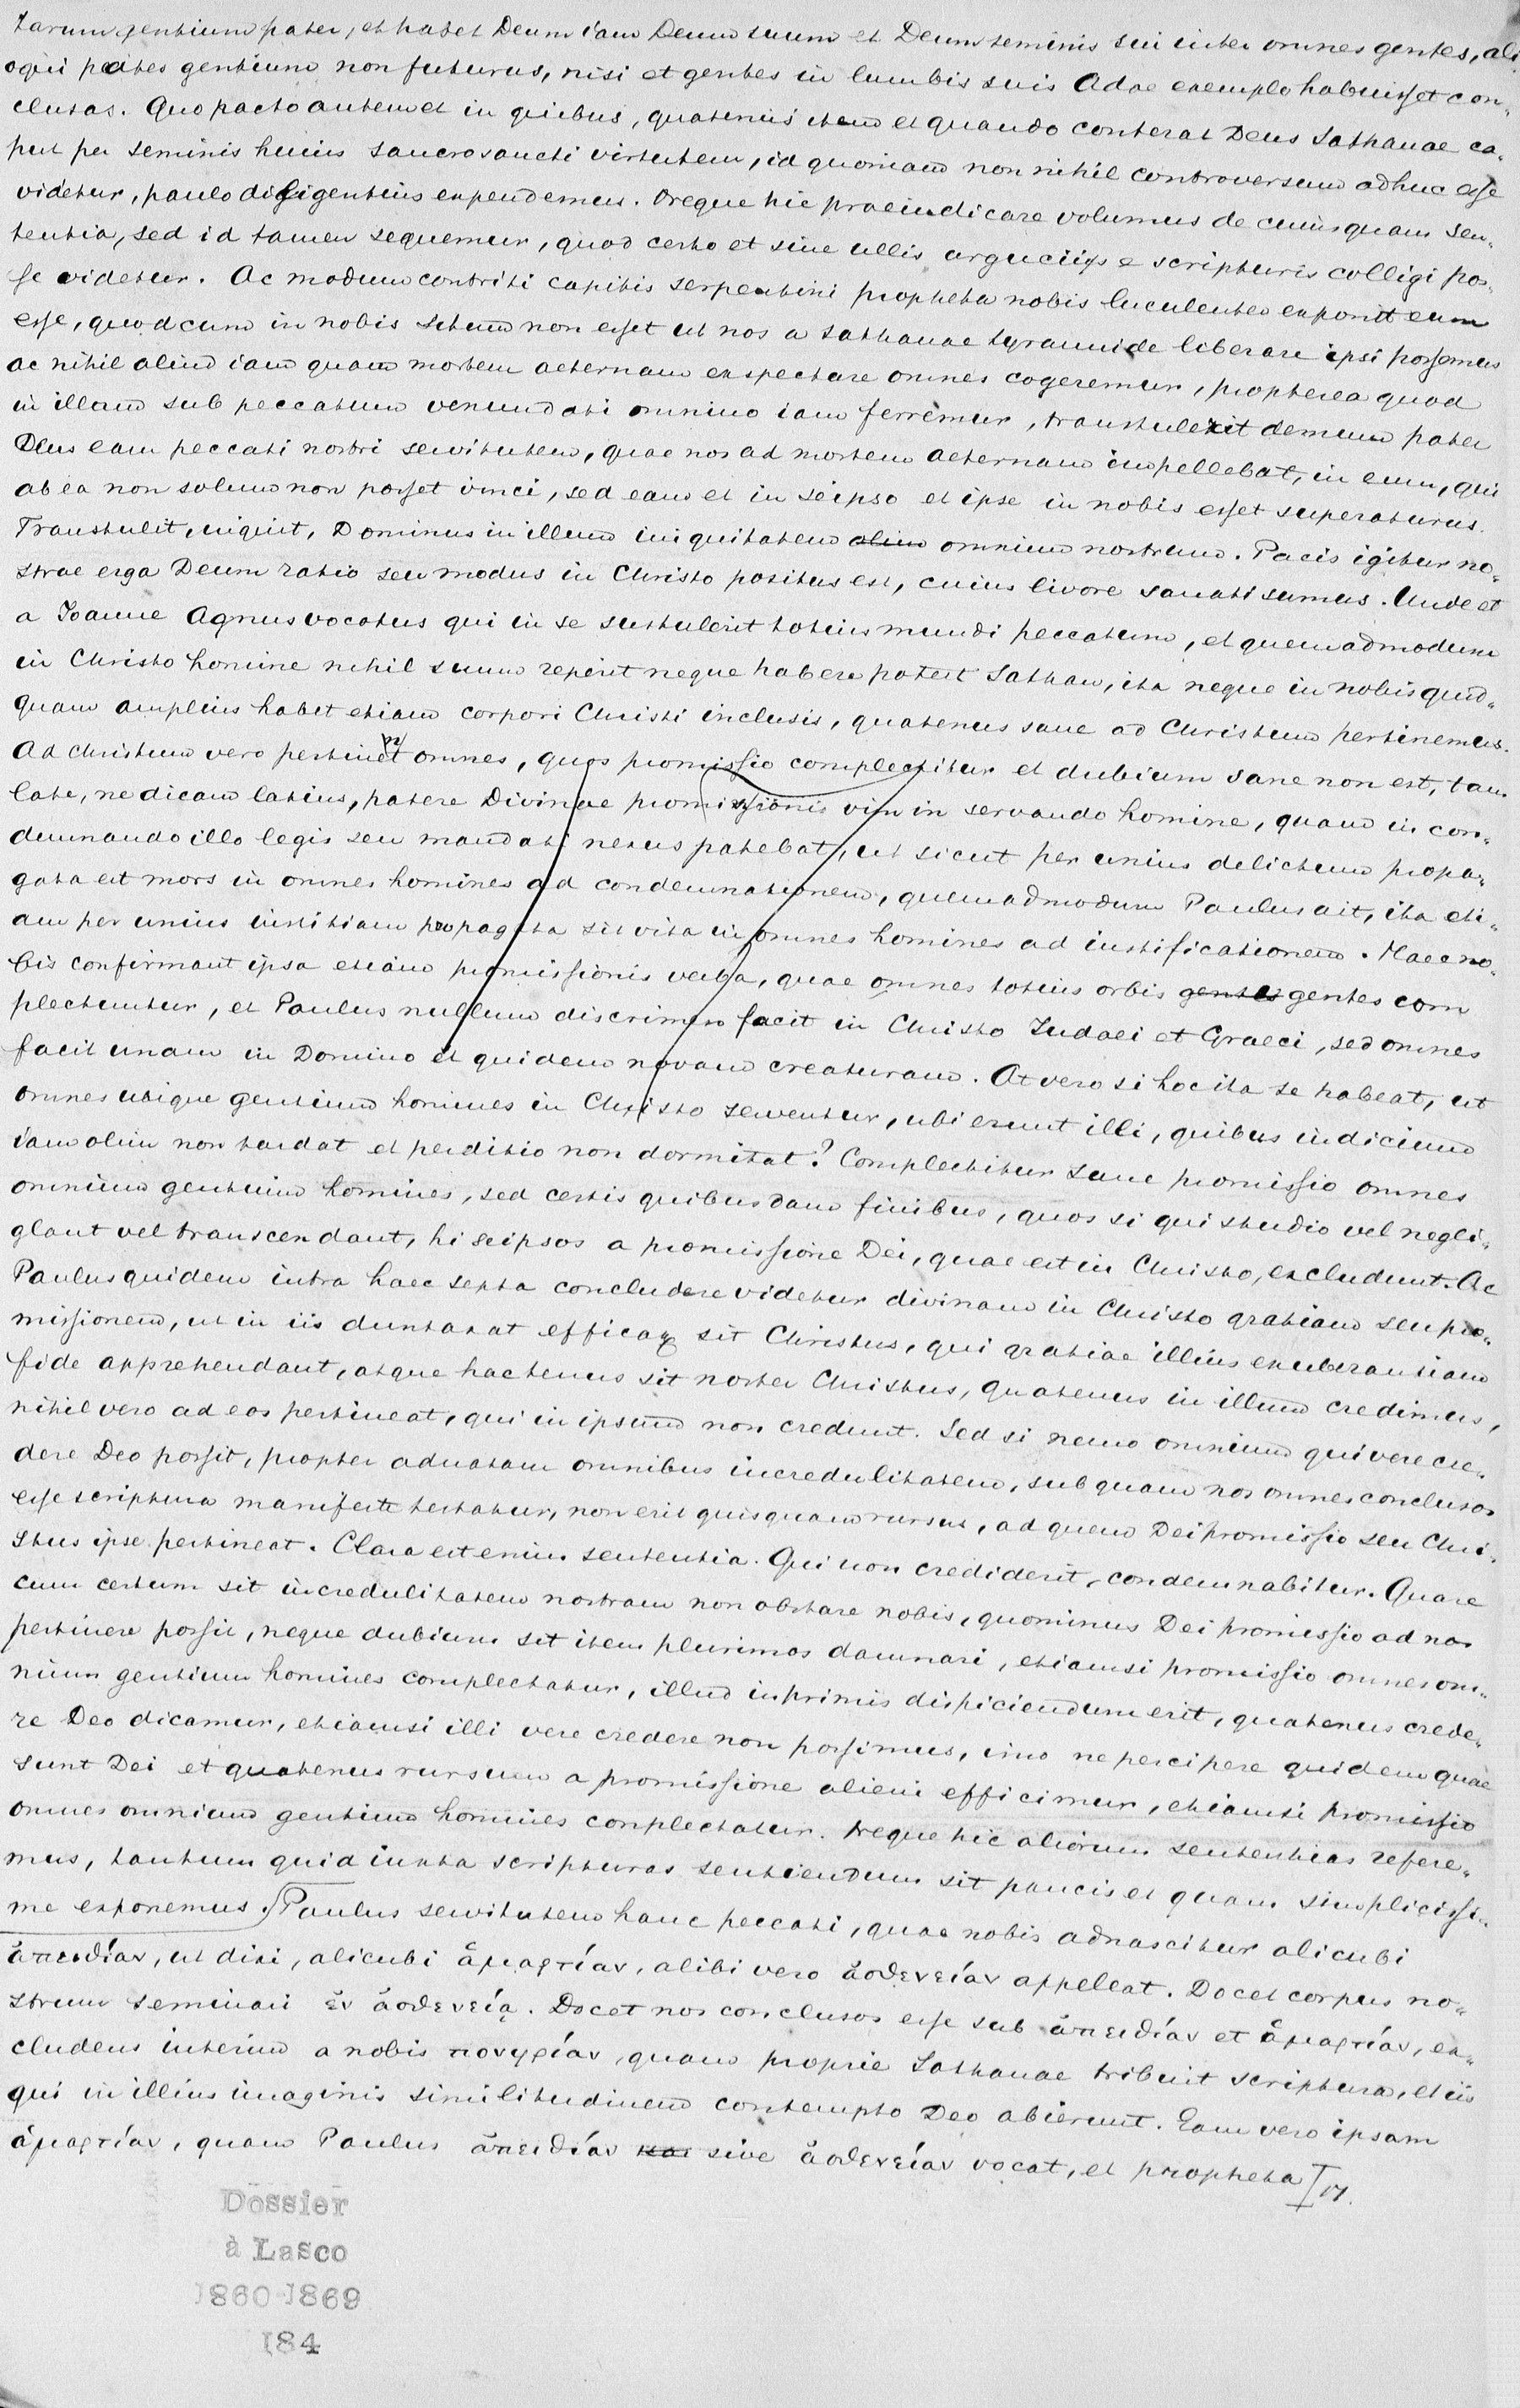 tarum gentium pater, et habet Deum iam Deum suum et Deum seminis sui inter omnes gentes, ali
oqui pater gentium non futurus, nisi et gentes in lumbis suis Adae exemplo habuisset con„
clusas. Quo pacto autem et in quibus, quatenus item et quando conterat Deus Sathanae ca„
put per seminis huius sancrosancti virtutem, id quoniam non nihil controversum adhuc esse
videtur, paulo diligentius expendemus. Neque hic praeiudicare volumus de cuiusquam sen„
tentia, sed id tamen sequemur, quod certo et sine ullis arguciis e scripturis colligi pos„
se videtur. Ac modum contriti capitis serpentini propheta nobis luculenter exponit eum
esse, quod cum in nobis situm non esset ut nos a Sathanae tyrannide liberare ipsi possemus
ac nihil aliud iam quam mortem aeternam exspectare omnes cogeremur, propterea quod
in illam sub peccatum venundati omnino iam ferremur, transtulerit demum pater
Deus eam peccati nostri servitutem, quae nos ad mortem aeternam impellebat, in eum, qui
ab ea non solum non posset vinci, sed eam et in seipso et ipse in nobis esset superaturus.
Transtulit, inquit, Dominus in illum iniquitatem omnium nostrum. Pacis igitur no„
strae erga Deum ratio seu modus in Christo positus est, cuius livore sanati sumus. Unde et
a Joanne Agnus vocatus qui in se sustulerit totius mundi peccatum, et quemadmodum
in Christo homine nihil suum reperit neque habere potest Sathan, ita neque in nobis quid„
quam amplius habet etiam corpori Christi inclusis, quatenus sane ad Christum pertinemus.
Ad Christum vero pertinent omnes, quos promissio complectitur et dubium sane non est, tam
late, ne dicam latius, patere Divinae promissionis vim in servando homine, quam in con„
demnando illo legis seu mandati nexus patebat, ut sicut per unius delictum propa„
gata est mors in omnes homines ad condemnationem, quemadmodum Paulus ait, ita eti„
am per unius iustitiam propagata sit vita in omnes homines ad iustificationem. Haec no„
bis confirmant ipsa etiam promissionis verba, quae omnes totius orbis gentes gentes com
plectuntur, et Paulus nullum discrimen facit in Christo Judaei et Graeci, sed omnes
facit unam in Domino et quidem novam creaturam. At vero si hoc ita se habeat, ut
omnes ubique gentium homines in Christo serventur, ubi erunt illi, quibus iudicium
iam olim non tardat et perditio non dormitat? Complectitur sane promissio omnes
omnium gentium homines, sed certis quibusdam finibus, quos si qui studio vel negli„
glant vel transcendant, hi seipsos a promissione Dei, quae est in Christo, excludunt. Ac
Paulus quidem intra haec septa concludere videtur divinam in Christo gratiam seu pro„
missionem, ut in iis duntaxat efficax sit Christus, qui gratiae illius exuberantiam
fide apprehendant, atque hactenus sit noster Christus, quatenus in illum credimus,
nihil vero ad eos pertineat, qui in ipsum non credunt. Sed si nemo omnium qui vere cre„
dere Deo possit, propter adnatam omnibus incredulitatem, sub quam nos omnes conclusos
esse scriptura manifeste testatur, non erit quisquam rursus, ad quem Dei promissio seu Chri„
stus ipse pertineat. Clara est enim sententia. Qui non crediderit, condemnabitur. Quare
cum certum sit incredulitatem nostram non obstare nobis, quominus Dei promissio ad nos
pertinere possit, neque dubium sit item plurimos damnari, etiamsi promissio omnes om„
nium gentium homines complectatur, illud inprimis dispiciendum erit, quatenus crede„
re Deo dicamur, etiamsi illi vere credere non possimus, imo ne percipere quidem quae
sunt Dei et quatenus rursum a promissione alieni efficimur, etiamsi promissio
omnes omnium gentium homines conplectatur. Neque hic aliorum sententias refere„
mus, tantum quid iuxta scripturas sentiendum sit paucis et quam simplicissi„
me exponemus. Paulus servitutem hanc peccati, quae nobis adnascitur alicubi
ἀπειθίαν, ut dixi, alicubi ἁμαρτίαν, alibi vero ἀσθενείαν appellat. Docet corpus no„
strum seminari ἐν ἀσθενείᾳ. Docet nos conclusos esse sub ἀπειθίαν et ἁμαρτίαν, ex„
cludens interim a nobis πονηρίαν, quam proprie Sathanae tribuit scriptura, et iis
qui in illius imaginis similitudinem contempto Deo abierunt. Eam vero ipsam
ἁμαρτίαν, quam Paulus ἀπειθίαν sive ἀσθενείαν vocat, et propheta
Dossier
à Lasco
1860-1869
184